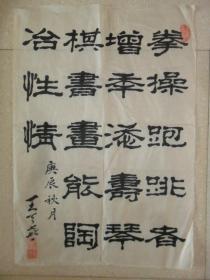 拳操跑跳者
增年添壽琴
棋書畫能陶
冶性情
庚辰秋月
王